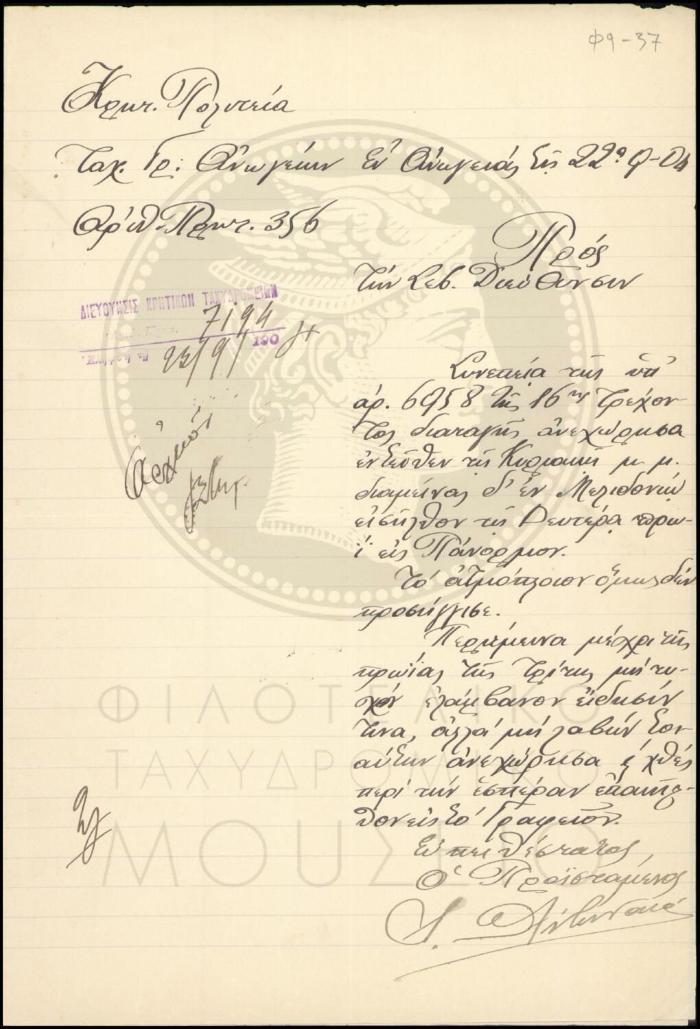 Φ9-37
Κρητ. Πολιτεία
Ταχ. Γρ: Ανωγείων Εν Ανωγείοις τη 22α 9-04
Αριθ. Πρωτ. 356
Προς
Την Σεβ. Διεύθυνσιν
ΔΙΕΥΘΥΝΣΙΣ ΚΡΗΤΙΚΩΝ ΤΑΧΥΔΡΟΜΕΙΩΝ
7194
23/9/ 190
Συνεπεία της υπ'
αρ. 6958 της 16ης τρέχον-
τος διαταγής ανεχώρησα
εντεύθεν τη Κυριακή μ. μ.
διαμείνας δ' εν Μελιδονίω
εισήλθον τη Δευτέρα πρω-
ΐ εις Πάνορμον.
Το ατμόπλοιον όμως δεν
προσήγγισε.
Περιέμεινα μέχρι της
πρωΐας της Τρίτης μη τυ-
χόν ελάμβανον είδησίν
τινα, αλλά μη λαβών τοι-
αύτην ανεχώρησα χθές
περί την εσπέραν επανήλ-
θον εις το Γραφείον.
Ευπειθέστατος
Ο Προϊστάμενος
ΦΙΛΟΤΕΛΙΚΟ
ΤΑΧΥΔΡΟΜΙΚΟ
ΜΟΥΣΕΙΟ